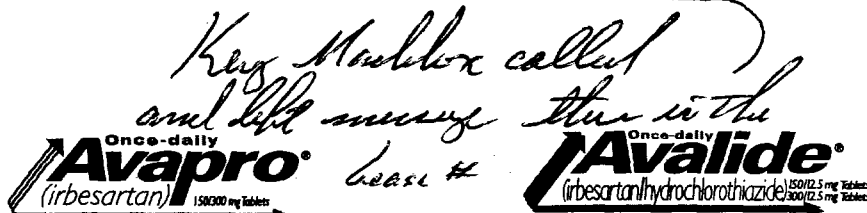 Key Maddox called
and left message this is the
Lease #
Once-daily
Avapro®
(irbesartan) 150/300 mg Tablets
Once-daily
Avalide®
(irbesartan/hydrochlorothiazide) 150/12.5 mg Tablets
300/12.5 mg Tablets